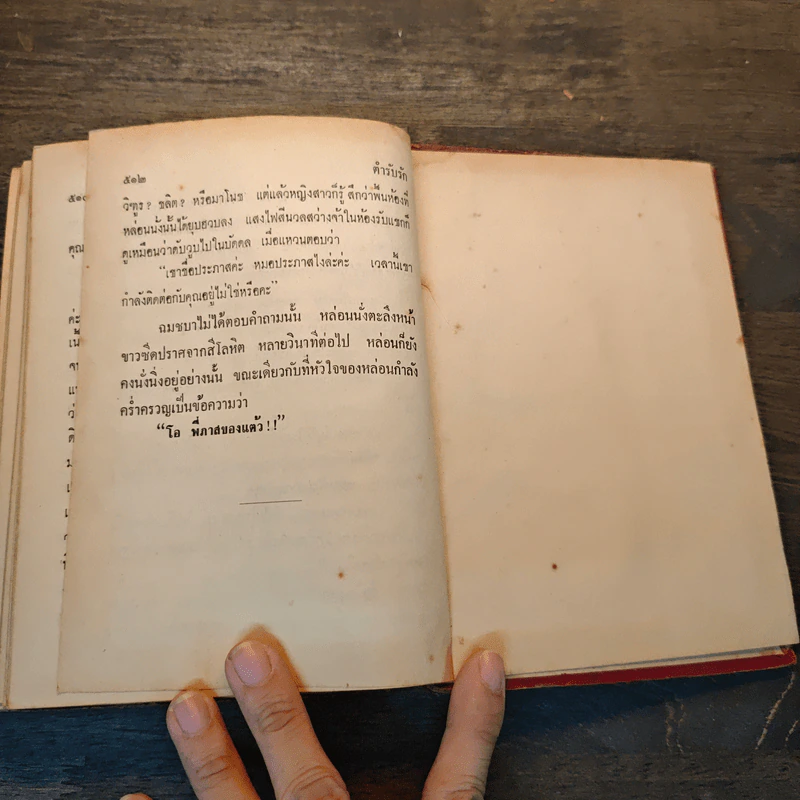 ๕๑๒ ตำรับรัก
วิฑูร? ชลิต? หรือมาโนช แต่แล้วหญิงสาวก็รู้สึกว่าพื้นห้องที่
หล่อนนั่งนั้นได้ยุบฮวบลง แสงไฟสีนวลสว่างจ้าในห้องรับแขกก็
ดูเหมือนว่าดับวูบไปในบัดดล เมื่อแหวนตอบว่า
“เขาชื่อประภาสค่ะ หมอประภาสไงล่ะค่ะ เวลานี้เขา
กำลังติดต่อกับคุณอยู่ไม่ใช่หรือคะ”
ฉมชบาไม่ได้ตอบคำถามนั้น หล่อนนั่งตะลึงหน้า
ขาวซีดปราศจากสีโลหิต หลายวินาทีต่อไป หล่อนก็ยัง
คงนั่งนิ่งอยู่อย่างนั้น ขณะเดียวกับที่หัวใจของหล่อนกำลัง
คร่ำครวญเป็นข้อความว่า
“โอ พี่ภาสของแต้ว!!”